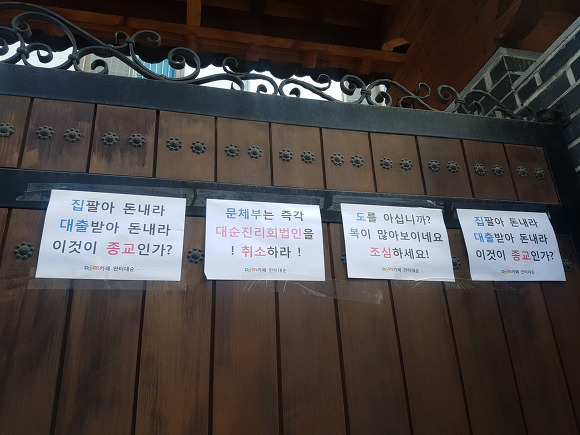 집팔아 돈내라
대출받아 돈내라
이것이 종교인가?
Daum카페 안티대순
문체부는 즉각
대순진리회법인을
! 취소하라 !
Daum카페 안티대순
도를 아십니까?
복이 많아보이네요
조심하세요!
Daum카페 안티대순
집팔아 돈내라
대출받아 돈내라
이것이 종교인가?
Daum카페 안티대순